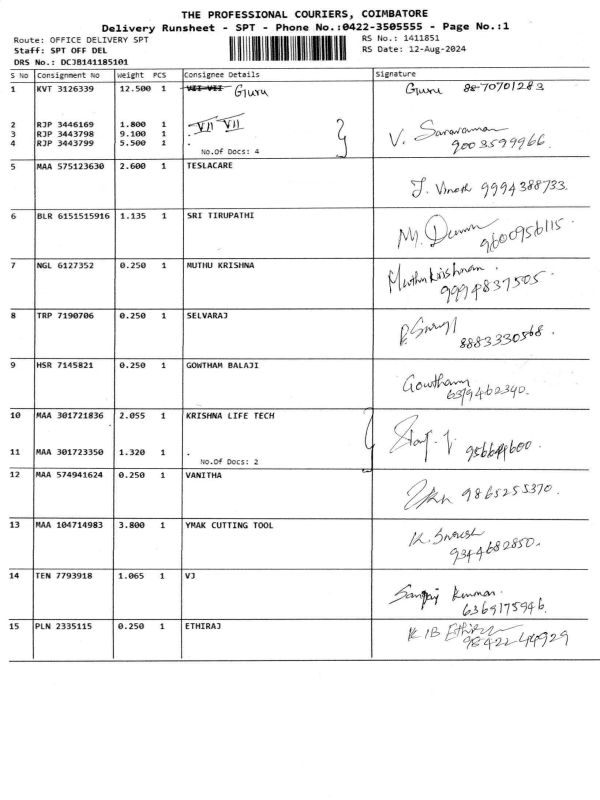 THE PROFESSIONAL COURIERS, COIMBATORE
Delivery Runsheet - SPT - Phone No.:0422-3505555 - Page No.:1
Route: OFFICE DELIVERY SPT RS No.: 1411851
Staff: SPT OFF DEL RS Date: 12-Aug-2024
DRS No.: DCJB141185101
S No Consignment No Weight PCS Consignee Details Signature
1 KVT 3126339 12.500 1 VII VII Guru Guru 88-70701283
2 RJP 3446169 1.800 1 VII VII
3 RJP 3443798 9.100 1 . V. Saravanan
4 RJP 3443799 5.500 1 . 9003599966.
No.Of Docs: 4
5 MAA 575123630 2.600 1 TESLACARE
J. Vinoth 9994388733.
6 BLR 6151515916 1.135 1 SRI TIRUPATHI
M. 9600956115.
7 NGL 6127352 0.250 1 MUTHU KRISHNA Muthukrishnan.
9994837505.
8 TRP 7190706 0.250 1 SELVARAJ
8883330568.
9 HSR 7145821 0.250 1 GOWTHAM BALAJI
Gowtham
6379462340.
10 MAA 301721836 2.055 1 KRISHNA LIFE TECH
11 MAA 301723350 1.320 1 .
No.Of Docs: 2
12 MAA 574941624 0.250 1 VANITHA
9865255370.
13 MAA 104714983 3.800 1 YMAK CUTTING TOOL
K. Suresh
9344682850.
14 TEN 7793918 1.065 1 VJ
Sanjay Kumar.
6369175946.
15 PLN 2335115 0.250 1 ETHIRAJ
98422 44929